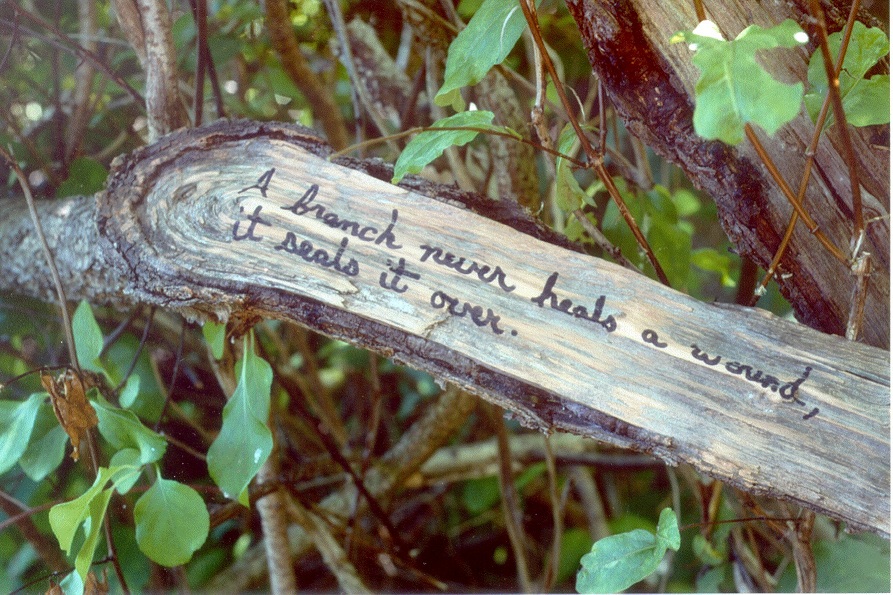 A branch never heals a wound,
it seals it over.